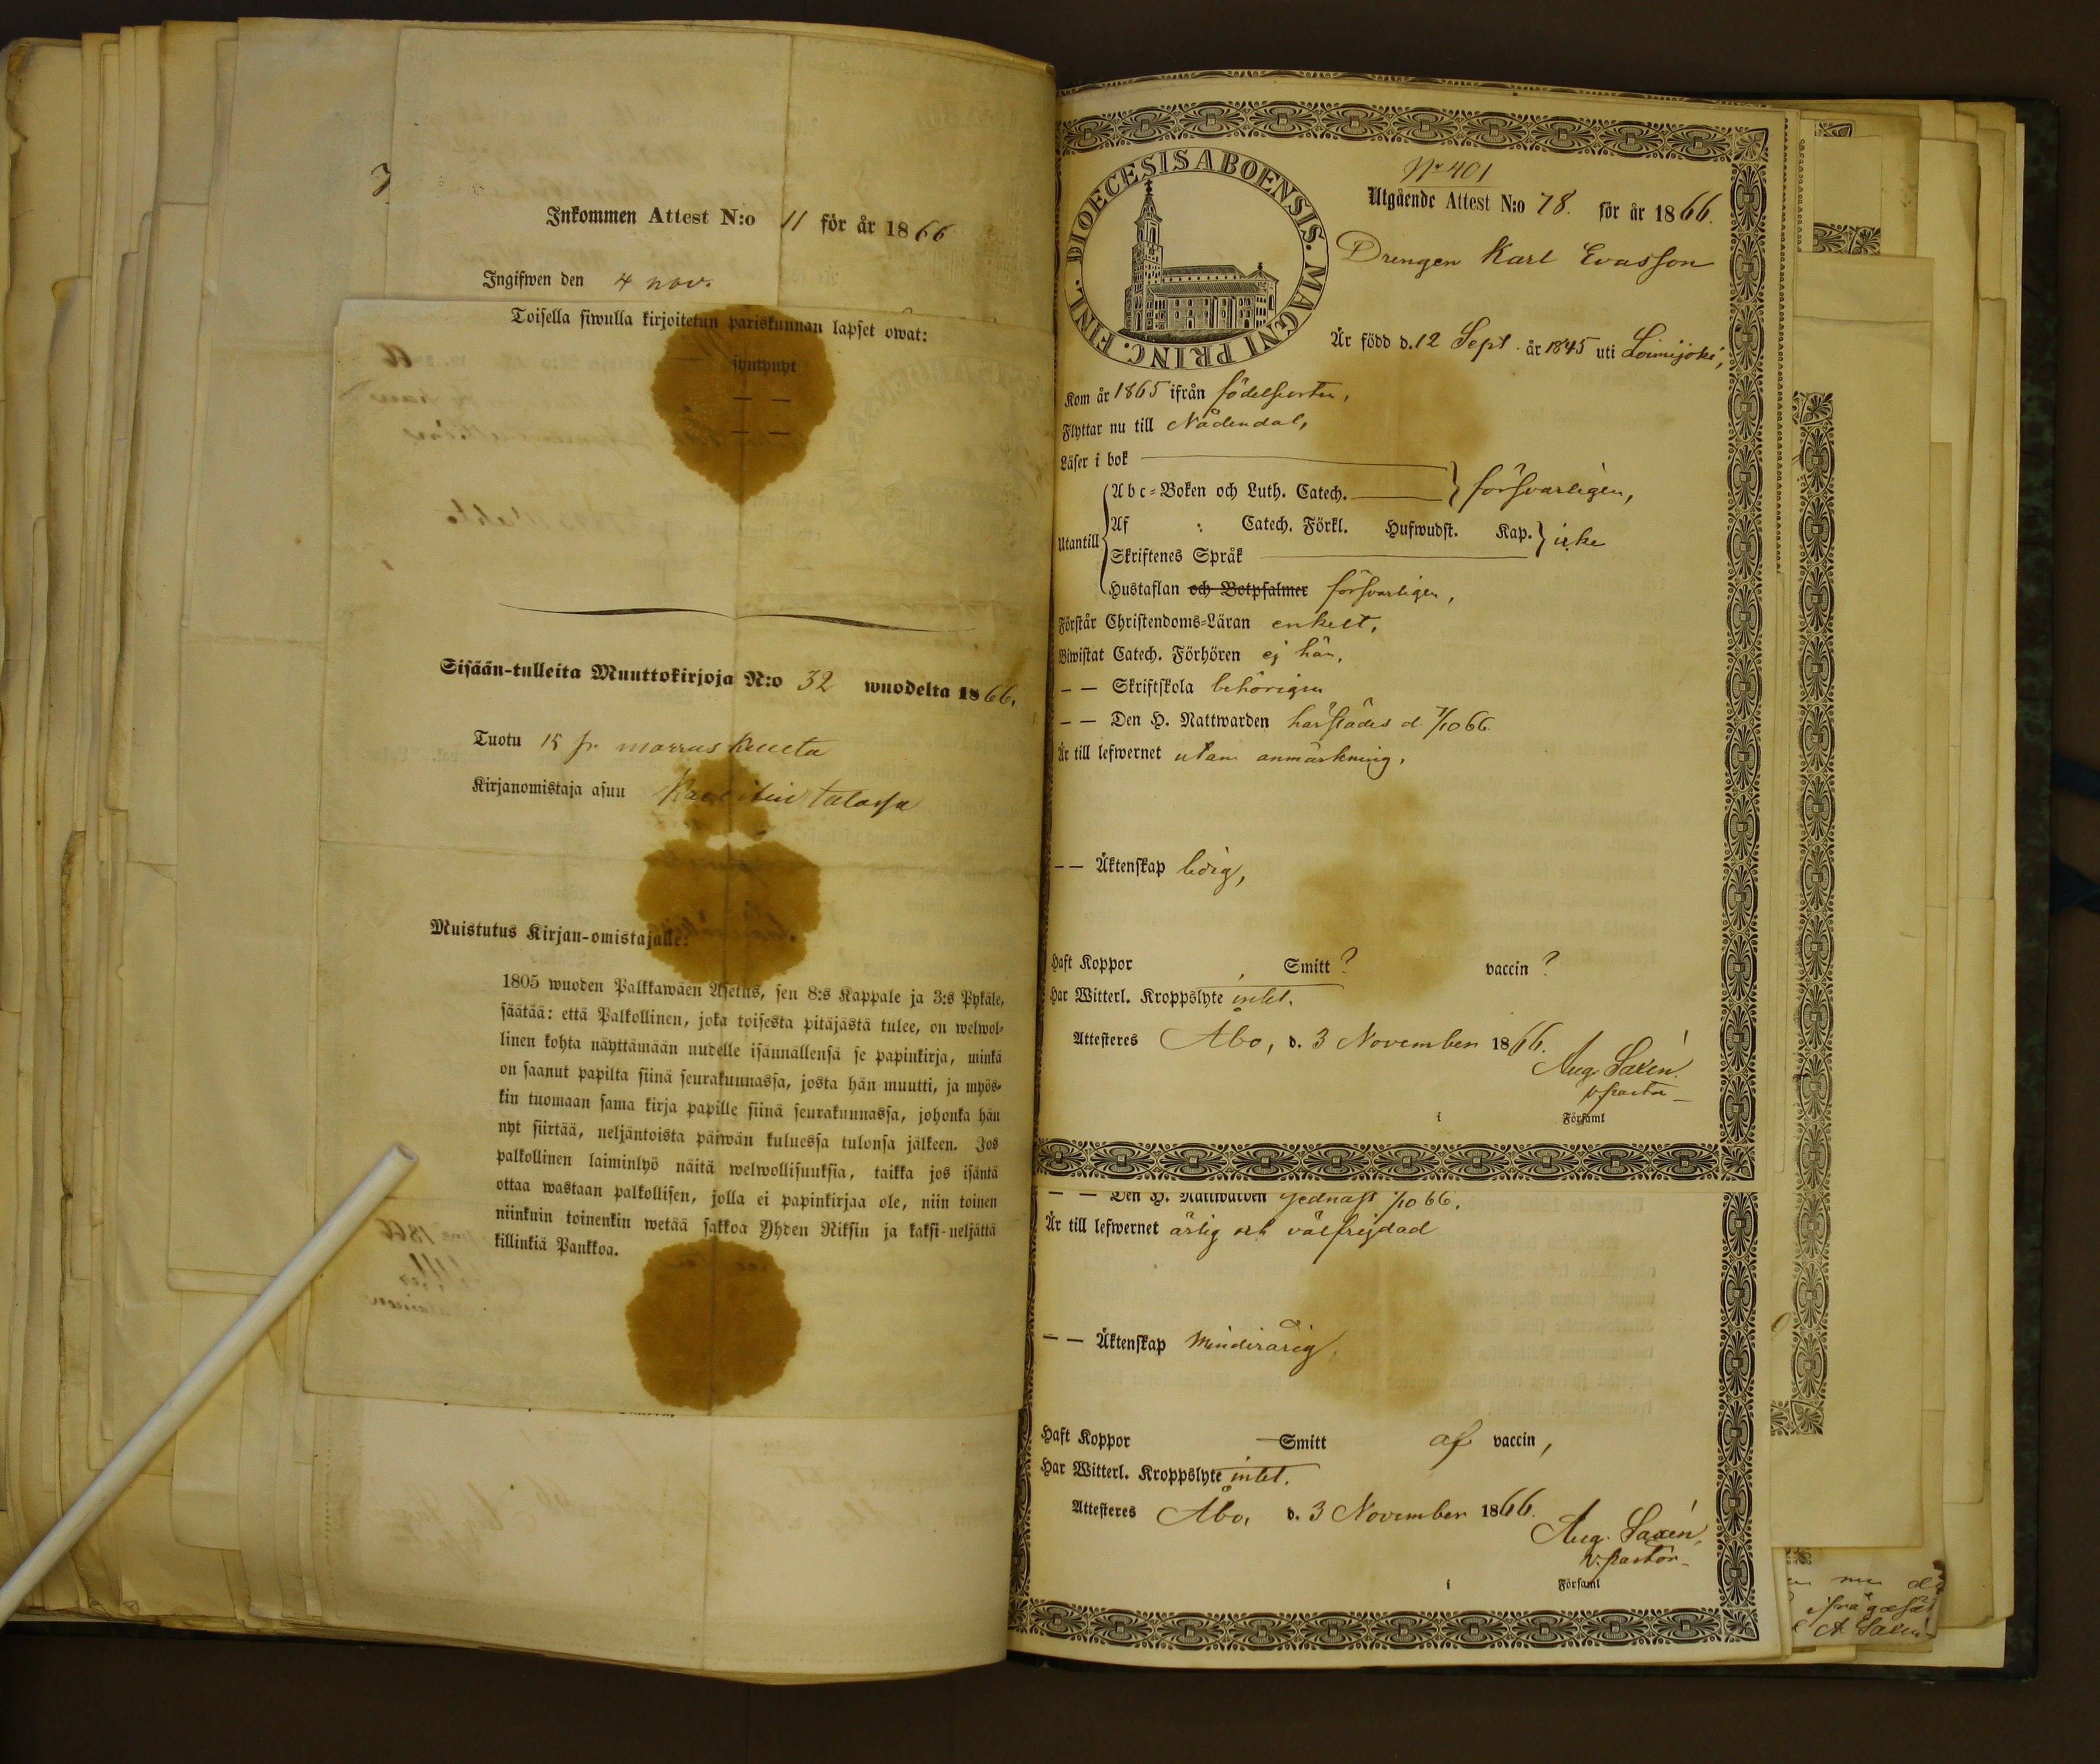 Inkommen Attest N:o 11 för år 1866
Ingifwen den 4 nov.
Toisella siwulla kirjoitetun pariskunnan lapset owat:
syntynyt
— —
— —
Sisään-tulleita Muuttokirjoja N:o 32 wuodelta 1866.
Tuotu 15 p. marraskuuta
Kirjanomistaja asuu talossa
Muistutus Kirjan-omistajalle:
1805 wuoden Palkkawäen Asetus, sen 8:s Kappale ja 3:s Pykäle,
säätää: että Palkollinen, joka toisesta pitäjästä tulee, on welwol-
linen kohta näyttämään uudelle isännällensä se papinkirja, minkä
on saanut papilta siinä seurakunnassa, josta hän muutti, ja myös-
kin tuomaan sama kirja papille siinä seurakunnassa, johonka hän
nyt siirtää, neljäntoista päiwän kuluessa tulonsa jälkeen. Jos
palkollinen laiminlyö näitä welwollisuuksia, taikka jos isäntä
ottaa wastaan palkollisen, jolla ei papinkirjaa ole, niin toinen
niinkuin toinenkin wetää sakkoa Yhden Riksin ja kaksi-neljättä
killinkiä Pankkoa.
DIOECESIS ABOENSIS. MAGNI PRINC. FINL.
Nr 401
Utgående Attest N:o 78. för år 1866.
Drengen Karl Evasson
Är född d. 12 Sept. år 1845 uti Loimijoki,
Kom år 1865 ifrån födelseorten,
Flyttar nu till Nådendal,
Läser i bok
Abc-Boken och Luth. Catech. försvarligen,
Utantill Af : Catech. Förkl. Hufwudst. Kap. icke
Skriftenes Språk
Hustaflan och Botpsalmer försvarligen,
Förstår Christendoms-Läran enkelt,
Biwistat Catech. Förhören ej här,
— — Skriftskola behörigen
— — Den H. Nattwarden härstädes d. 7/10 66.
Är till lefwernet utan anmärkning,
— — Äktenskap ledig,
Haft Koppor Smitt ? vaccin ?
Har Witterl. Kroppslyte intet.
Attesteres Åbo, d. 3 November 1866.
Aug. Saxén.
v. pastor
i Församl
— — Den H. Nattwarden sednast 7/10 66.
Är till lefwernet ärlig och välfrejdad
— — Äktenskap Minderårig,
Haft Koppor Smitt af vaccin,
Har Witterl. Kroppslyte intet.
Attesteres Åbo, d. 3 November 1866.
Aug. Saxén,
v. pastor
i Församl
A. Saxén